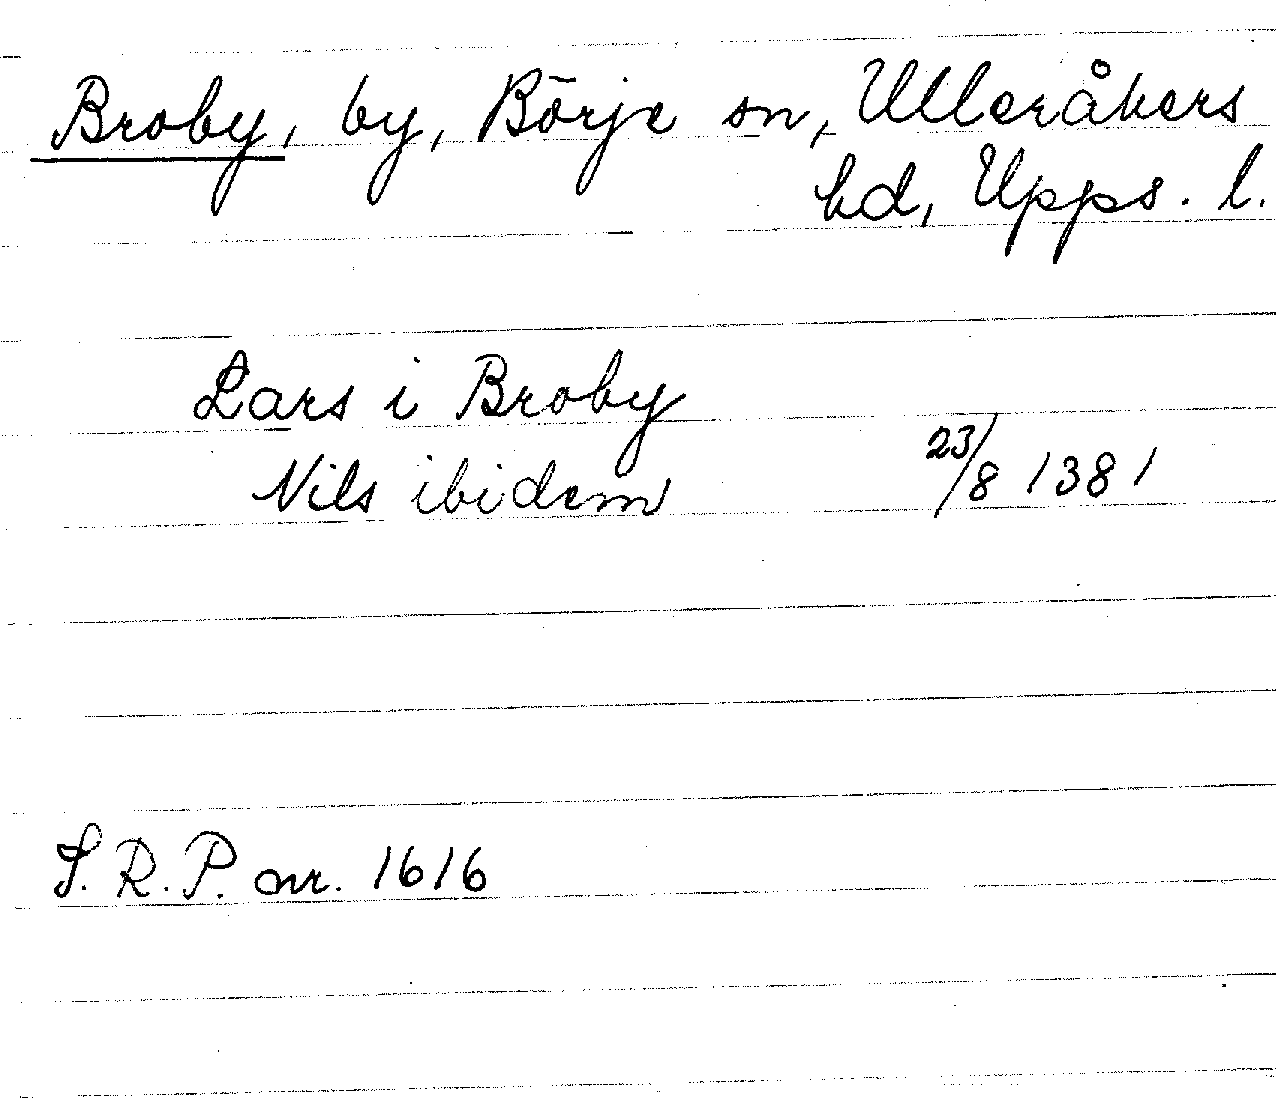 Broby, by, Börje sn, Ulleråkers
hd, Upps. l.
Lars i Broby
Nils ibidem 23/8 1381
S.R.P. nr. 1616